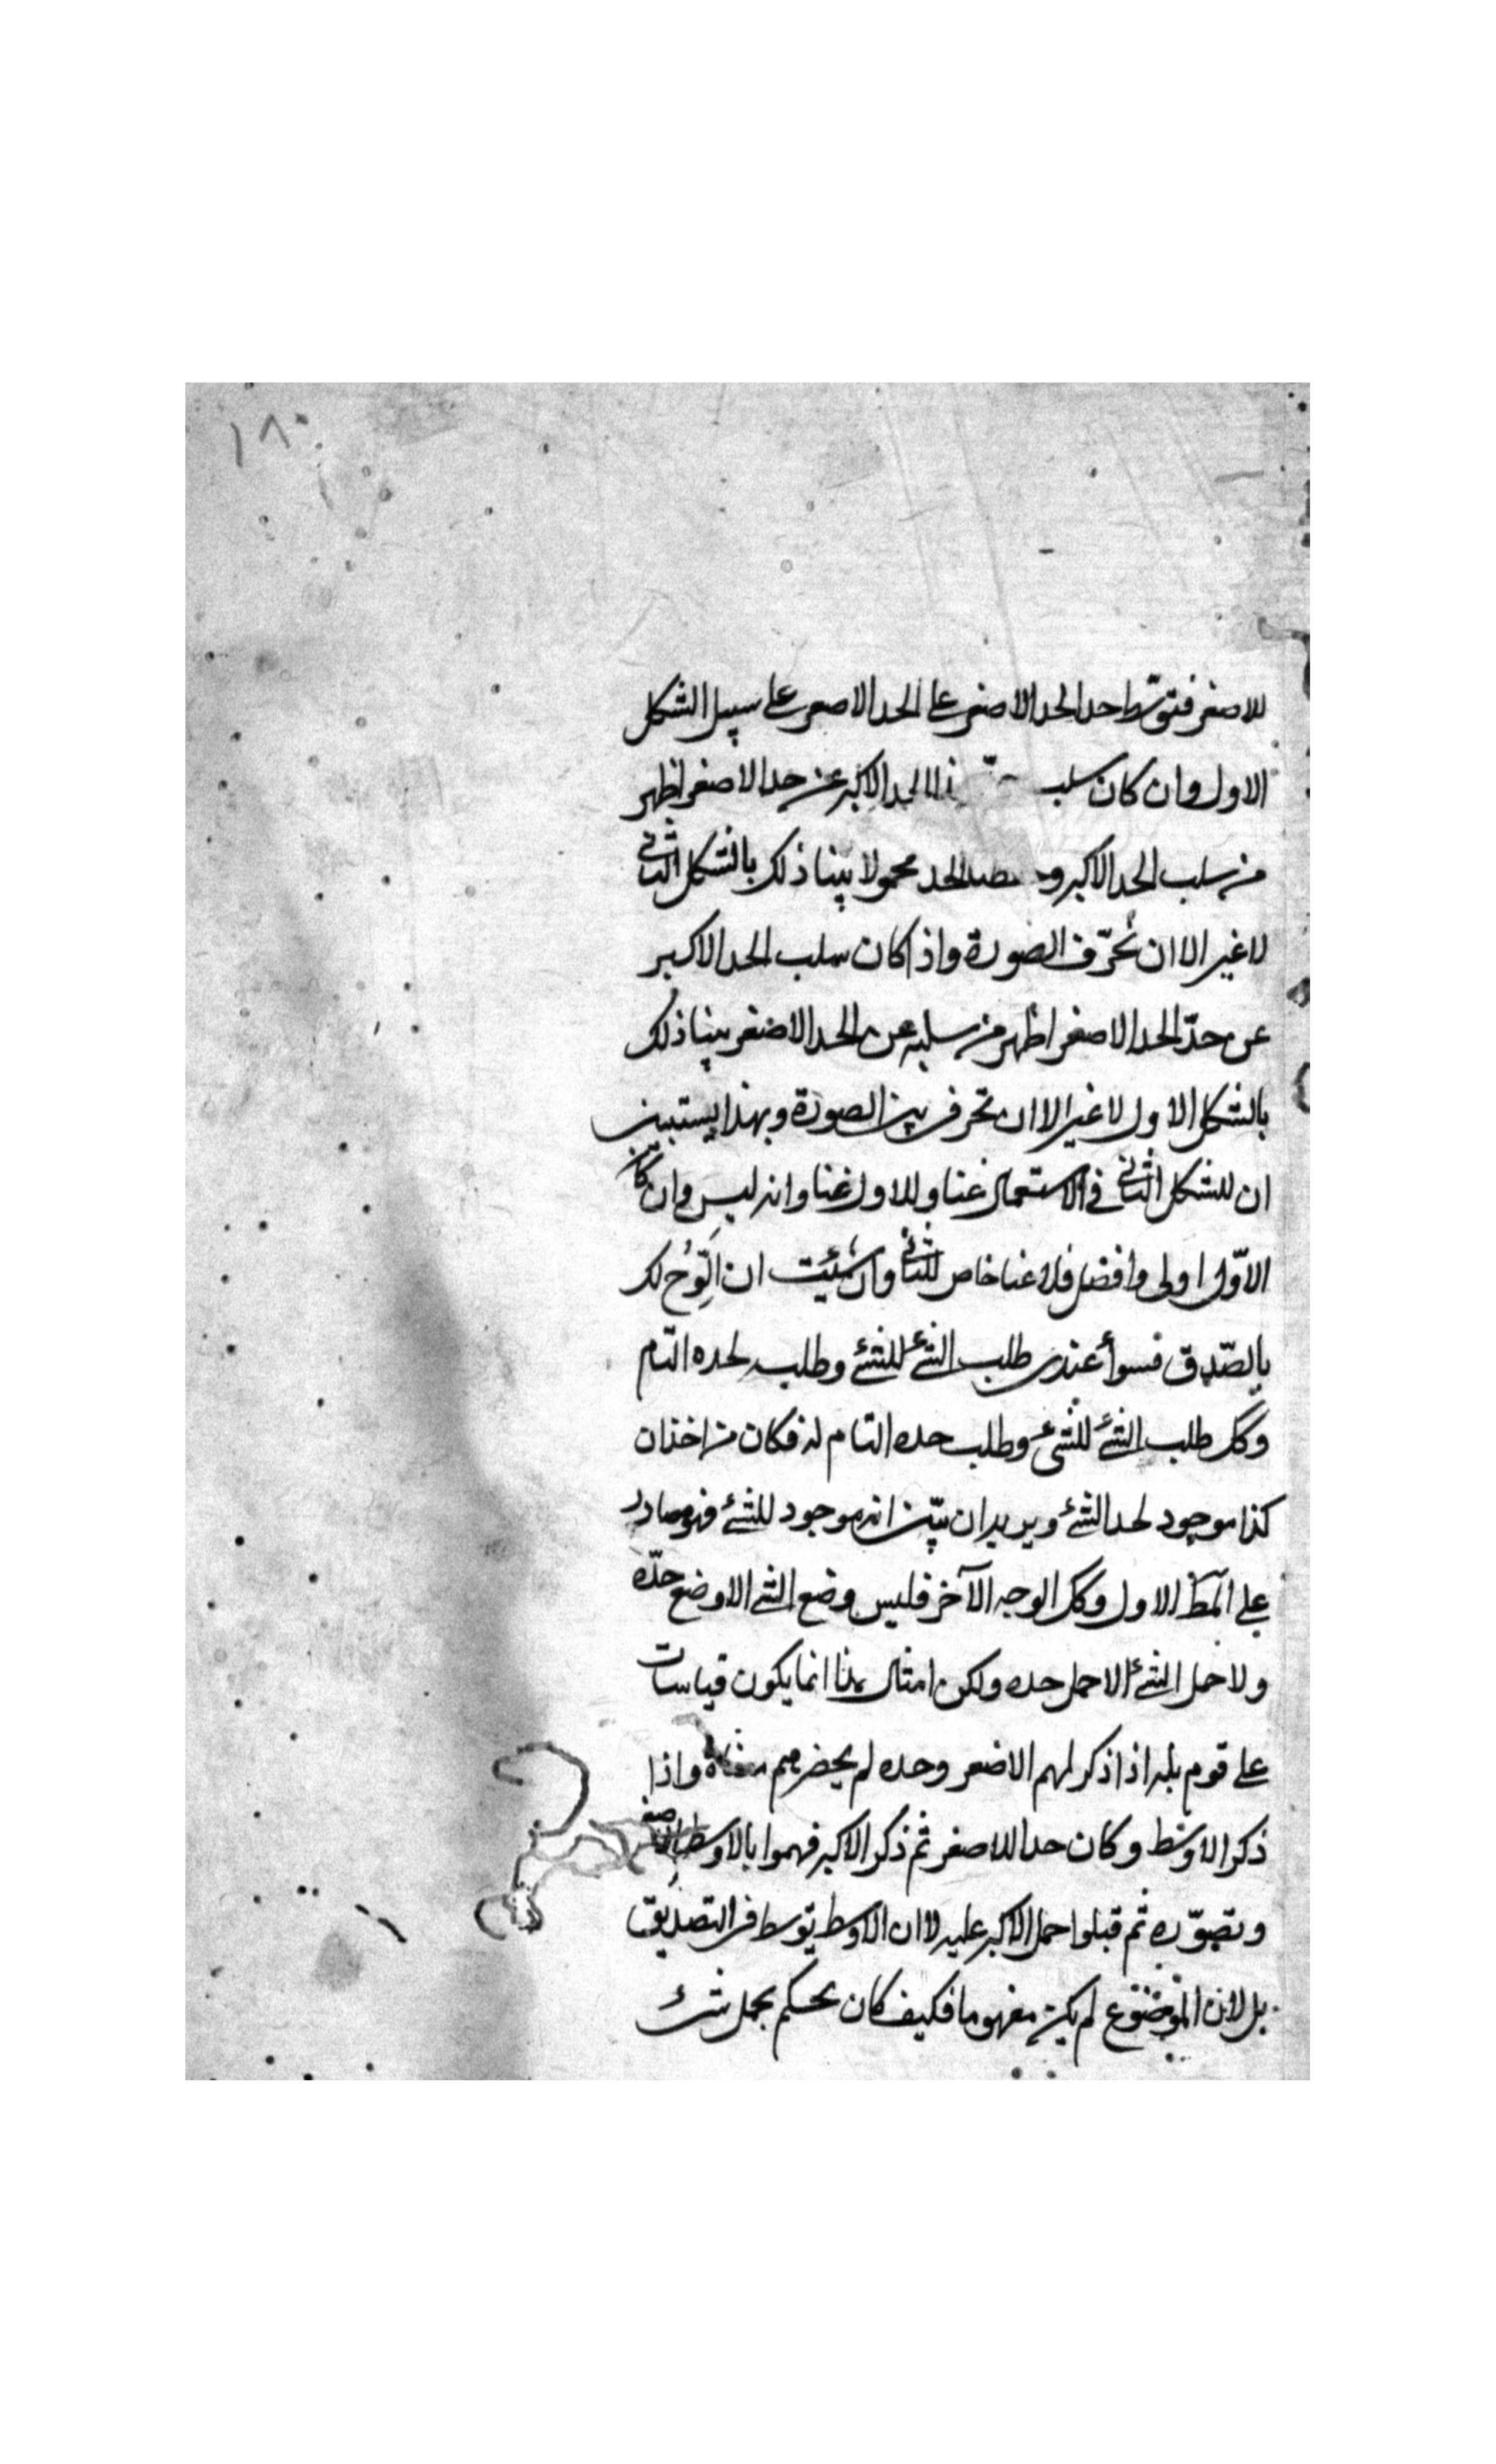 ١٨٠
للاصغر فتوسّط حد الحد الاصغر على الحد الاصغر على سبيل الشكل
الاول وان كان سلب الحد الاكبر عن حد الاصغر اظهر
من سلب الحد الاكبر الحد محمولا بينا ذلك بالشكل الثانى
لا غير الا ان نُحرّف الصورة واذا كان سلب الحد الاكبر
عن حدّ الحد الاصغر اظهر من سلبه عن الحد الاصغر بينا ذلك
بالشكل الاول لا غير الا ان تحرف بين الصورة وبهذا يستبين
ان للشكل الثانى فى الاستعمال غنا وللاول غنا وانه ليس وان كان
الاوّل اولى وافضل فلا غنا خاص للثانى وان شئت ان الوّح لك
بالصّدق فسوأ عندى طلب الشئ للشئ وطلبه لحده التام
وكل طلب الشئ للشئ وطلب حده التام له فكان من اخذ ان
كذا موجود لحد الشئ ويريد ان يبّين انه موجود للشئ فهو مصادر
على المط الاول وكل الوجه الآخر فليس وضع الشئ الا وضع حدّه
ولا حمل الشئ الا حمل حده ولكن امثال هذا انما يكون قياسات
على قوم بله اذا ذكر لهم الاصغر وحده لم يحضرهم معناه واذا
ذكر الاوسط وكان حدا للاصغر ثم ذكر الاكبر فهموا بالاوسط الاصغر
وتصوّره ثم قبلوا حمل الاكبر عليه لا ان الاوسط يتوسط فى التصديق
بل لان الموضوع لم يكن مفهوما فكيف كان يحكم بحمل شئ